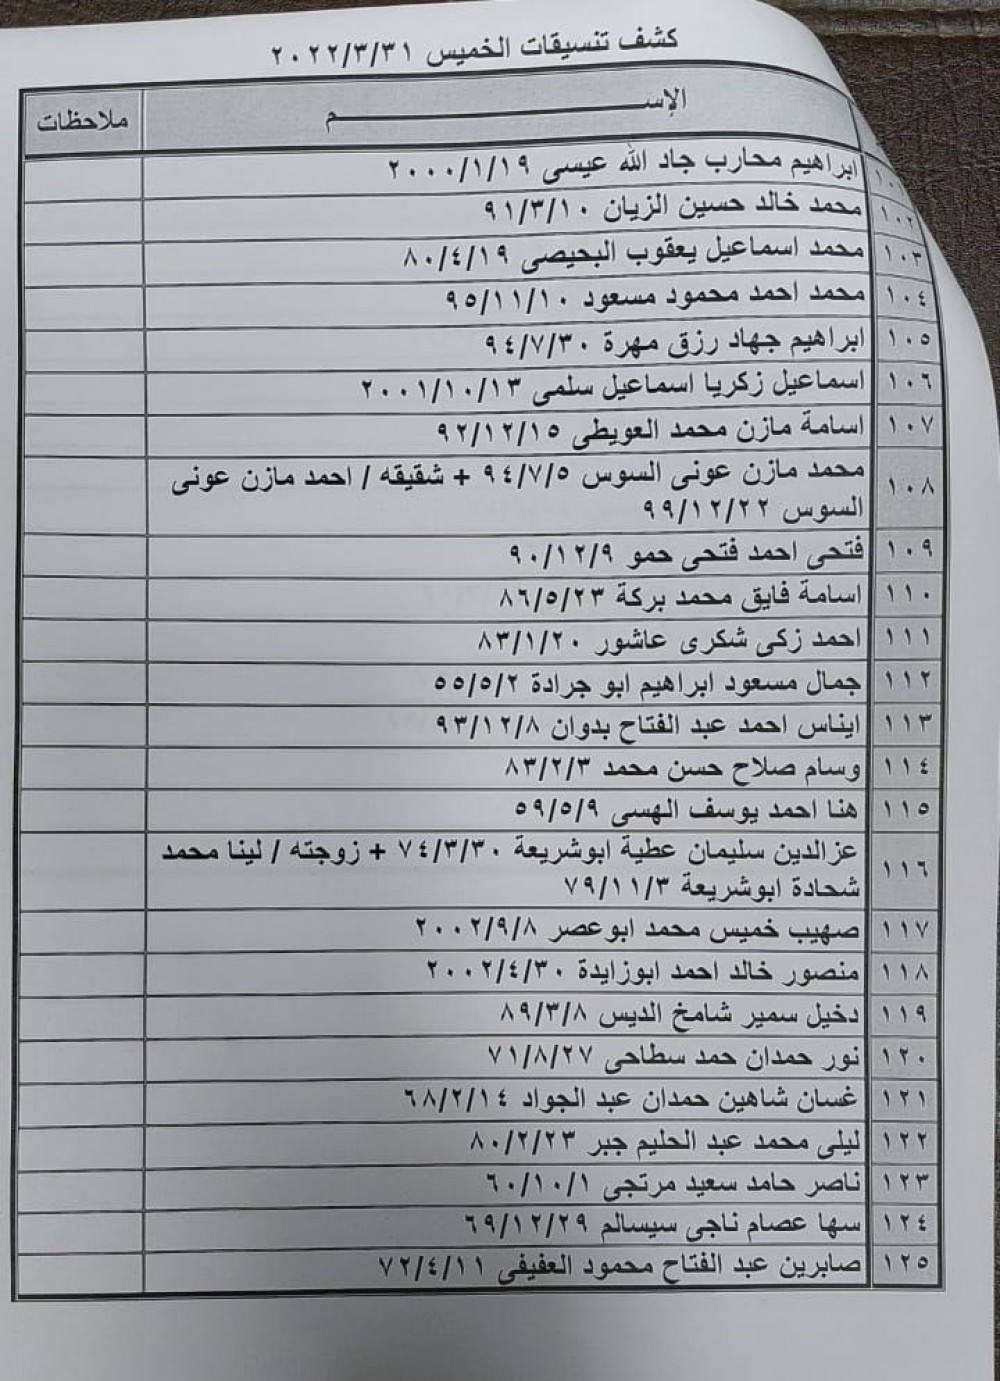 كشف تنسيقات الخميس ٢٠٢٢/٣/٣١
الإســـــــــم ملاحظات
ابراهيم محارب جاد الله عيسى ٢٠٠٠/١/١٩
١٠٢ محمد خالد حسين الزيان ٩١/٣/١٠
١٠٣ محمد اسماعيل يعقوب البحيصى ٨٠/٤/١٩
١٠٤ محمد احمد محمود مسعود ٩٥/١١/١٠
١٠٥ ابراهيم جهاد رزق مهرة ٩٤/٧/٣٠
١٠٦ اسماعيل زكريا اسماعيل سلمى ٢٠٠١/١٠/١٣
١٠٧ اسامة مازن محمد العويطى ٩٢/١٢/١٥
١٠٨ محمد مازن عونى السوس ٩٤/٧/٥ + شقيقه / احمد مازن عونى
السوس ٩٩/١٢/٢٢
١٠٩ فتحى احمد فتحى حمو ٩٠/١٢/٩
١١٠ اسامة فايق محمد بركة ٨٦/٥/٢٣
١١١ احمد زكى شكرى عاشور ٨٣/١/٢٠
١١٢ جمال مسعود ابراهيم ابو جرادة ٥٥/٥/٢
١١٣ ايناس احمد عبد الفتاح بدوان ٩٣/١٢/٨
١١٤ وسام صلاح حسن محمد ٨٣/٢/٣
١١٥ هنا احمد يوسف الهسى ٥٩/٥/٩
١١٦ عزالدين سليمان عطية ابوشريعة ٧٤/٣/٣٠ + زوجته / لينا محمد
شحادة ابوشريعة ٧٩/١١/٣
١١٧ صهيب خميس محمد ابوعصر ٢٠٠٢/٩/٨
١١٨ منصور خالد احمد ابوزايدة ٢٠٠٢/٤/٣٠
١١٩ دخيل سمير شامخ الديس ٨٩/٣/٨
١٢٠ نور حمدان حمد سطاحى ٧١/٨/٢٧
١٢١ غسان شاهين حمدان عبد الجواد ٦٨/٢/١٤
١٢٢ ليلى محمد عبد الحليم جبر ٨٠/٢/٢٣
١٢٣ ناصر حامد سعيد مرتجى ٦٠/١٠/١
١٢٤ سها عصام ناجى سيسالم ٦٩/١٢/٢٩
١٢٥ صابرين عبد الفتاح محمود العفيفى ٧٢/٤/١١